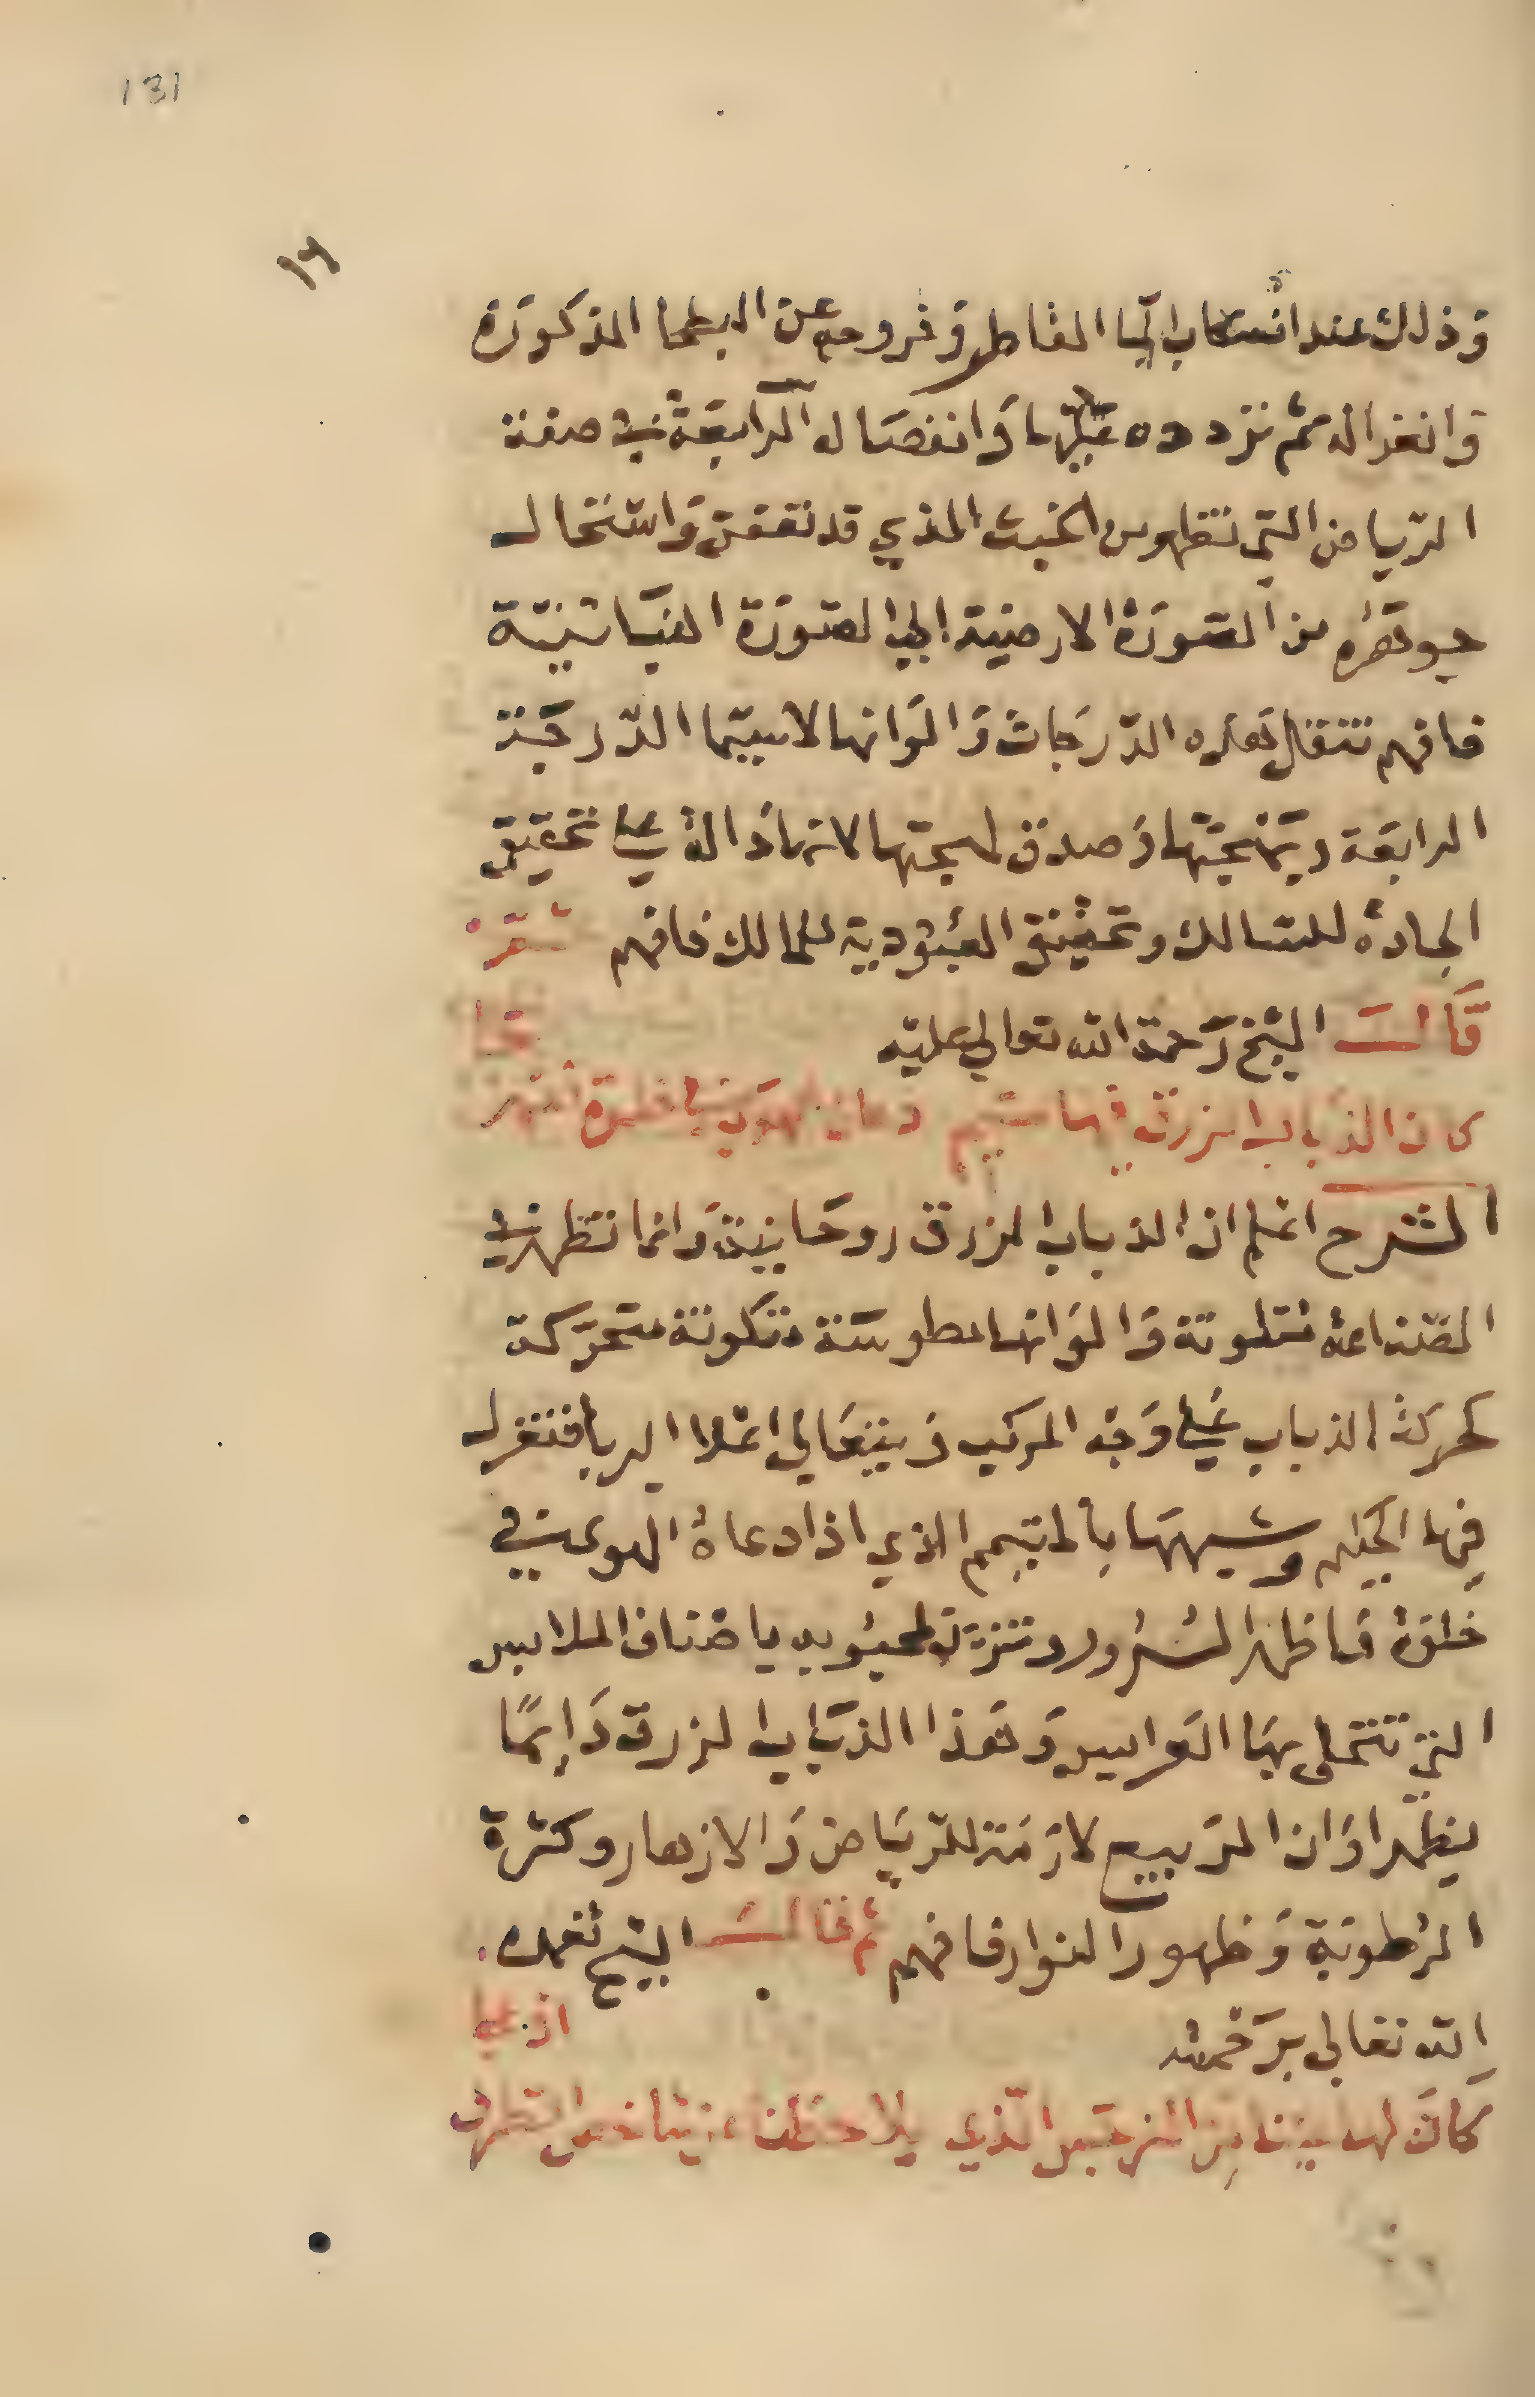 131
١٦
وذلك عند انسحاب الما القاطر وخروجه عن البطحا المذكورة
وانعزاله ثم تردده عليها وانفصاله الرابعة في صفة
الرياض التي تتطهر من الخبث الذي قد تعفن واستحال
جوهره من الصورة الارضية الي الصورة النباتية
فافهم تنقل هذه الدرجات والوانها لاسيما الدرجة
الرابعة وبهجتها وصدق لهجتها لانها دالة علي تحقيق
الجادة للسالك وتحقيق العبودية للمالك فافهم شعر
قال الشيخ رحمة الله تعالي عليه
كان الذباب الزرق فيها متيم دعاه الهوي في خلوة
الشرح اعلم ان الذباب الزرق روحانية وانما تظهر في
الصناعة متلونة والوانها مطوسة متكونة متحركة
كحركة الذباب علي وجه المركب وينتعالي اعلا الربا فتنزل
فيها الحيل وشبهها بالمتيم الذي اذا دعاه الهوي في
خلوة فاظهر السرور وتزين لمحبوبه باصناف الملابس
التي تتحلي بها العرايس وهذا الذباب الزرق دايما
يظهر اوان الربيع لازمة للرياض والازهار وكثرة
الرطوبة وظهور النوار فافهم ثم قال الشيخ تغمده
الله تعالي برحمته
كان لها بيننا من النرجس الذي يلاحظنا